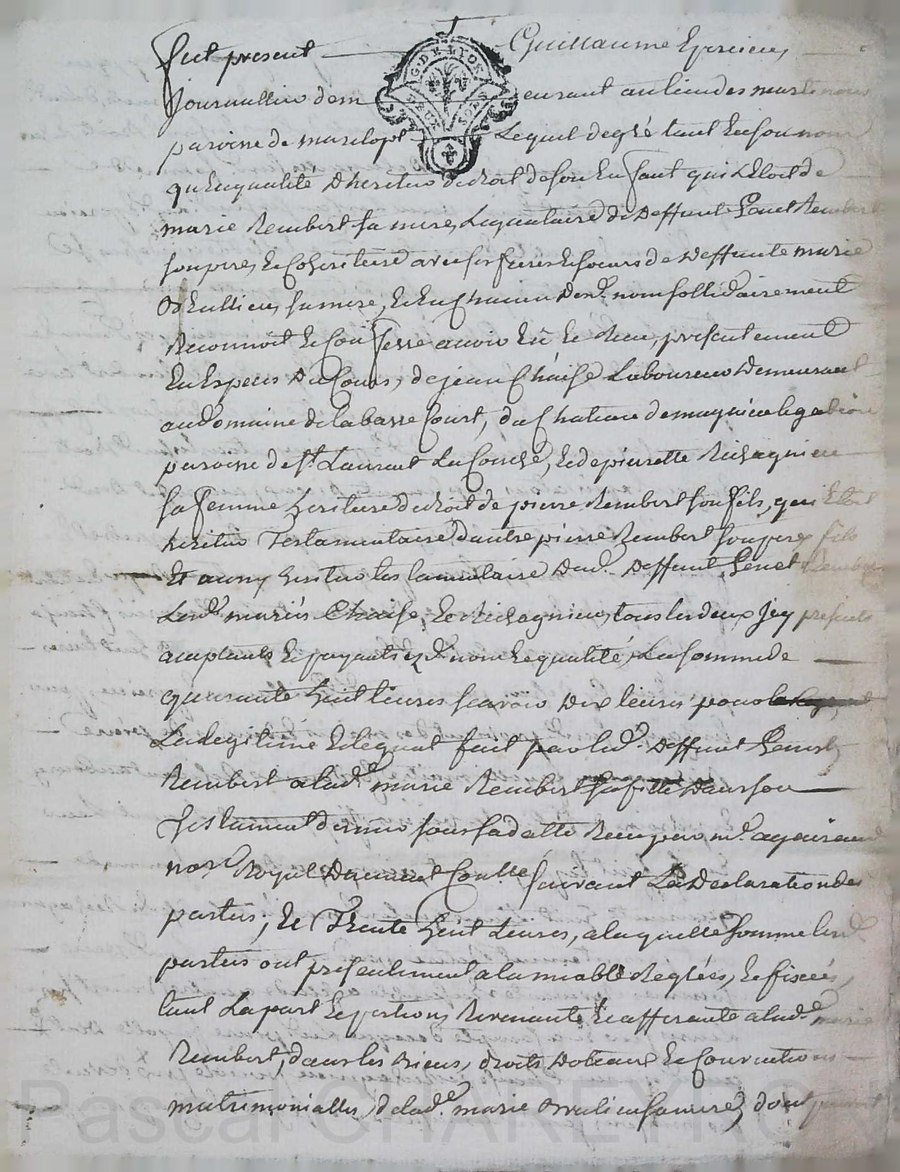 fut present Guillaume
GENER. DE LYON
DEUX SOLS
Journallier dem eurant au lieu des
paroisse de Lequel de gré tant en son nom
qu'en qualité d'heritier de droit de son enfant qui letoit de
marie Rembert sa mere, Legataire de deffunt Genet Rembert
son pere, et Coheritiere avec ses freres et soeurs de deffunte marie
sa mere, et en Chacun desd. nom sollidairement
Reconnoit et Confesse avoir eu et Receu presentement
en Especes du Cours, de jean Chaise Laboureur Demeurant
au Domaine de la basse Court, du Chateau de
paroisse de St. Laurent La Conche, et de pierrette Richagnieu
sa femme heritiere de droit de pierre Rembert son fils, qui Etoit
heritier Testamentaire d'autre pierre Rembert son pere fils
Et aussy heritier Dud. Deffunt Genet Rembert
Lesd. mariés Chaise, et Richagnieu, tous les deux Icy presents
acceptants et payants esd. nom et qualité, La somme de
quarante huit Livres scavoir Dix Livres pour
La legitime et legat fait par led. deffunt Genet
Rembert a lad. marie Rembert sa fille Dans son
Testament dernier sous sa datte Receu par me.
nore Royal Duement Contlle suivant La Declaration des
parties; Et Trente huit Livres, a laquelle somme lesd.
parties ont presentement a lamiable Reglées, et fixées,
tant La part et portion Revenante et afferante a lad. marie
Rembert, dans les Biens, droits Doteaux et Conventions
matrimonialles, de lad. marie sa mere, dont
Pascal CHAREYRON